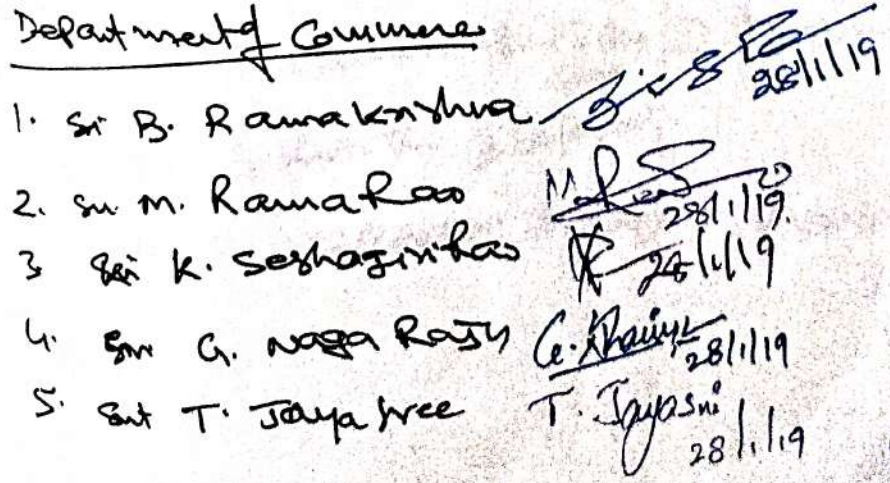 Department of Commerce
1. Sri B. Ramakrishna 28/1/19
2. Sri M. Rama Rao 28/1/19.
3 Sri K. Seshagiri Rao 28/1/19
4. Sri G. Naga Raju 28/1/19
5. Smt T. Jaya Sree T. Jayasri 28/1/19